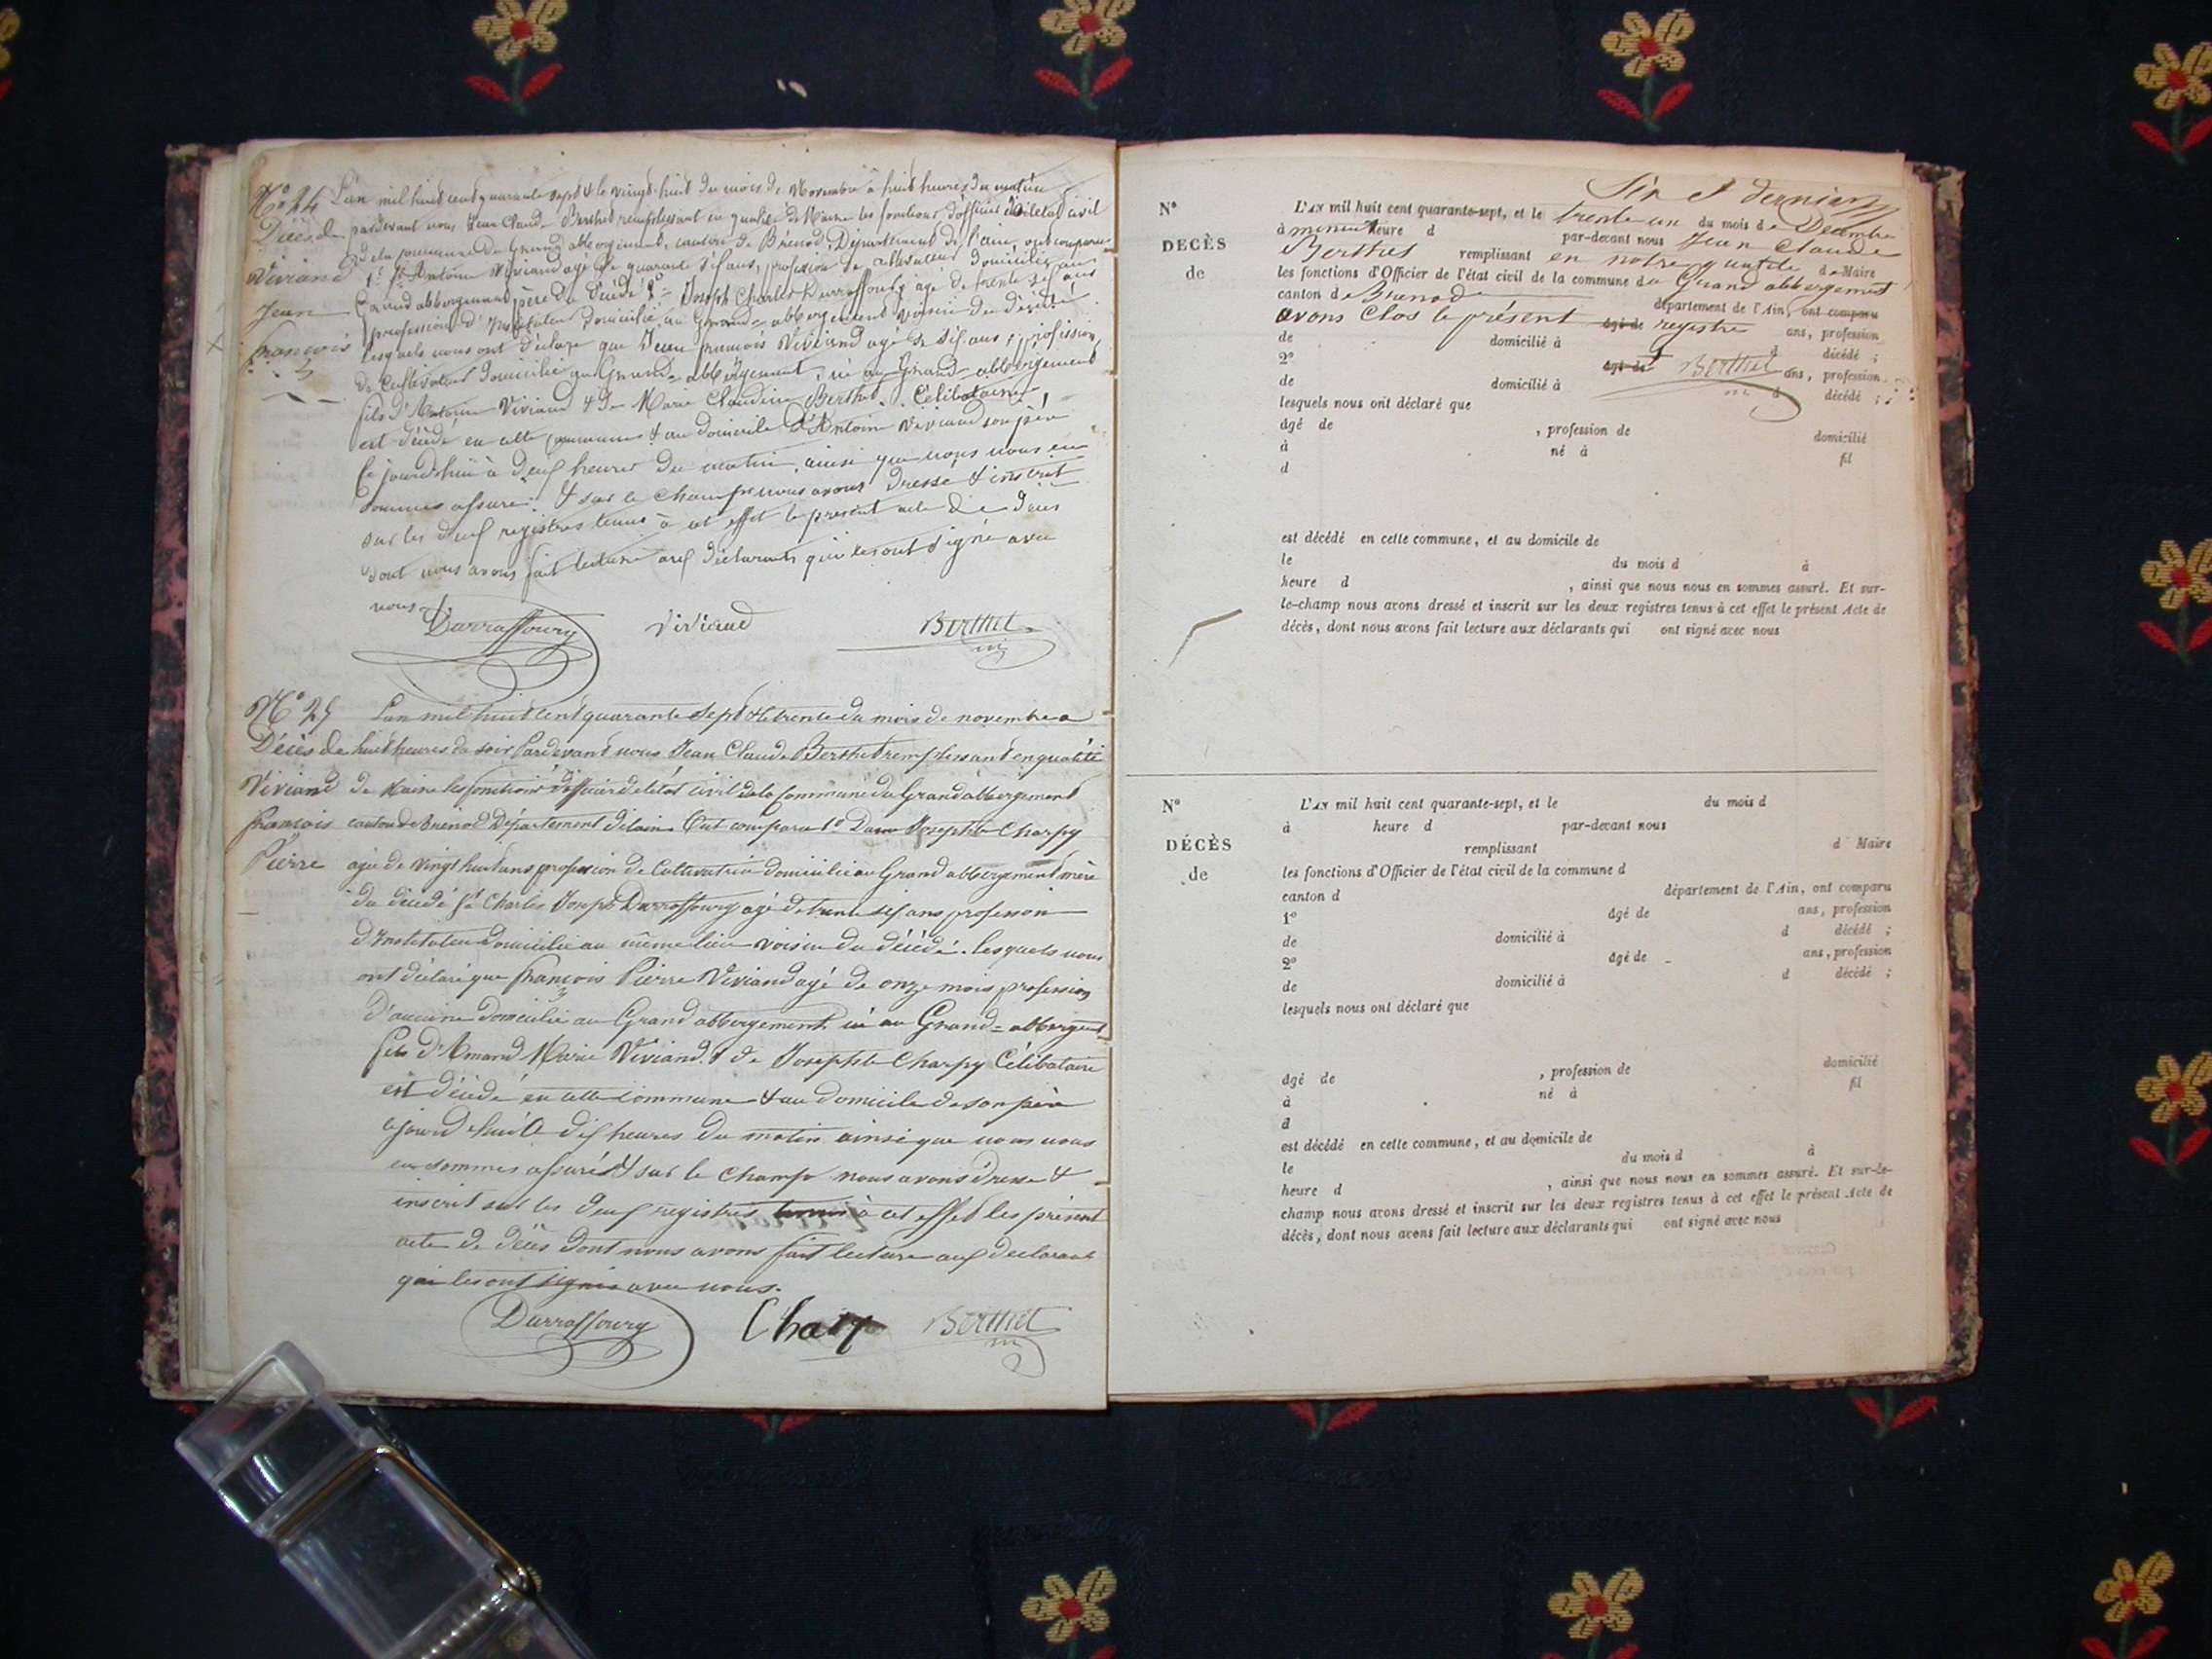 N° 24
Décès de
Viviand
Jean
françois
L'an mil huit cent quarante sept & le vingt-huit du mois de Novembre à huit heures du matin
pardevant nous Jean Claude Berthet remplissant en qualité de Maire les fonctions d'officier de l'état civil
de la commune du Grand abbergement, canton de Brénod, Département de l'ain, ont comparu
1° Antoine Viviand agé de quarante six ans, profession de cultivateur domicilié au
Grand abbergement père du décédé 2° Joseph Charles Darraffourg agé de trente six ans
profession d'Instituteur domicilié au Grand-abbergement voisin du décédé
lesquels nous ont déclaré que Jean françois Viviand agé de dix ans, profession
de Cultivateur domicilié au Grand-abbergement, né au Grand-abbergement
fils d'Antoine Viviand & de Marie Claudine Berthet. Célibataire
est décédé en cette commune & au domicile d'Antoine Viviand son père
Ce jourd'hui à deux heures du matin, ainsi que nous nous en
sommes assuré. & sur le champ nous avons dressé & inscrit
sur les deux registres tenus à cet effet le présent acte de décès
dont nous avons fait lecture aux déclarants qui les ont signé avec
nous.
Darraffourg Viviand Berthet
N° 25
Décès de
Viviand
françois
Pierre
L'an mil huit cent quarante sept & le trente du mois de novembre a
huit heures du soir Pardevant nous Jean Claude Berthet remplissant en qualité
de Maire les fonctions d'officier de létat civil de la Commune du Grand abbergement
canton de Brenod Département de lain Ont comparu 1° Dame Josephte Charpy
agée de vingt huit ans profession de Cultivatrice domiciliée au Grand abbergement mère
du décédé Charles Joseph Darraffourg agé de trente six ans profession
d'Instituteur domicilié au même lieu voisin du décédé. lesquels nous
ont déclaré que françois Pierre Viviand agé de onze mois profession
d'aucune domicilié au Grand abbergement né au Grand-abbergemt
fils d'Amand Marie Viviand & de Josephte Charpy Célibataire
est décédé en cette commune & au domicile de son père
cejourd'hui à dix heures du matin ainsi que nous nous
en sommes assurés & sur le champ nous avons dressé &
inscrit sur les deux registres tenus à cet effet les présent
acte de décès dont nous avons fait lecture aux déclarant
qui les ont signés avec nous.
Darraffourg Charpy Berthet
N°
DÉCÈS
de
L'AN mil huit cent quarante-sept, et le trente un du mois de Décembre
à minuit heure d par-devant nous Jean Claude
Berthet remplissant en notre qualité de Maire
les fonctions d'Officier de l'état civil de la commune du Grand abbergement
canton de Brenod département de l'Ain, ont comparu
avons Clos le présent âgé de registre ans, profession
de domicilié à d décédé ;
2° âgé de Berthet ans, profession
de domicilié à d décédé ;
lesquels nous ont déclaré que
âgé de , profession de domicilié
à né à fil
d
est décédé en cette commune, et au domicile de
le du mois d à
heure d , ainsi que nous nous en sommes assuré. Et sur-
le-champ nous avons dressé et inscrit sur les deux registres tenus à cet effet le présent Acte de
décès, dont nous avons fait lecture aux déclarants qui ont signé avec nous
N°
DÉCÈS
de
L'AN mil huit cent quarante-sept, et le du mois d
à heure d par-devant nous
remplissant d Maire
les fonctions d'Officier de l'état civil de la commune d
canton d département de l'Ain, ont comparu
1° âgé de ans, profession
de domicilié à d décédé ;
2° âgé de ans, profession
de domicilié à d décédé ;
lesquels nous ont déclaré que
âgé de , profession de domicilié
à né à fil
d
est décédé en cette commune, et au domicile de
le du mois d à
heure d , ainsi que nous nous en sommes assuré. Et sur-le-
champ nous avons dressé et inscrit sur les deux registres tenus à cet effet le présent Acte de
décès, dont nous avons fait lecture aux déclarants qui ont signé avec nous